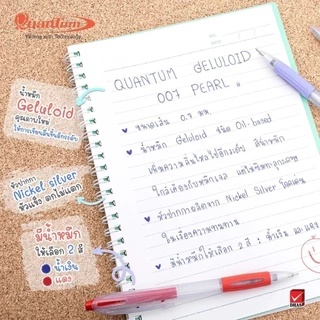 Quantum
Writing with Technology
QUANTUM GELULOID
007 PEARL
ขนาดเส้น 0.7 มม.
น้ำหมึก Geluloid ชนิด Oil-based
เพิ่มความลื่นไหลไปอีกระดับ สีน้ำหมึก
ใกล้เคียงกับหมึกเจล แต่ไม่ซึมทะลุกระดาษ
หัวปากกาผลิตจาก Nickel Silver โดดเด่น
ในเรื่องความทนทาน
มีน้ำหมึกให้เลือก 2 สี : น้ำเงิน และ แดง
น้ำหมึก
Geluloid
คุณภาพใหม่
ให้การเขียนลื่นขึ้นอีกระดับ
หัวปากกา
Nickel silver
หัวแข็ง ตกไม่แตก
มีน้ำหมึก
ให้เลือก 2 สี
น้ำเงิน
แดง
DHAS